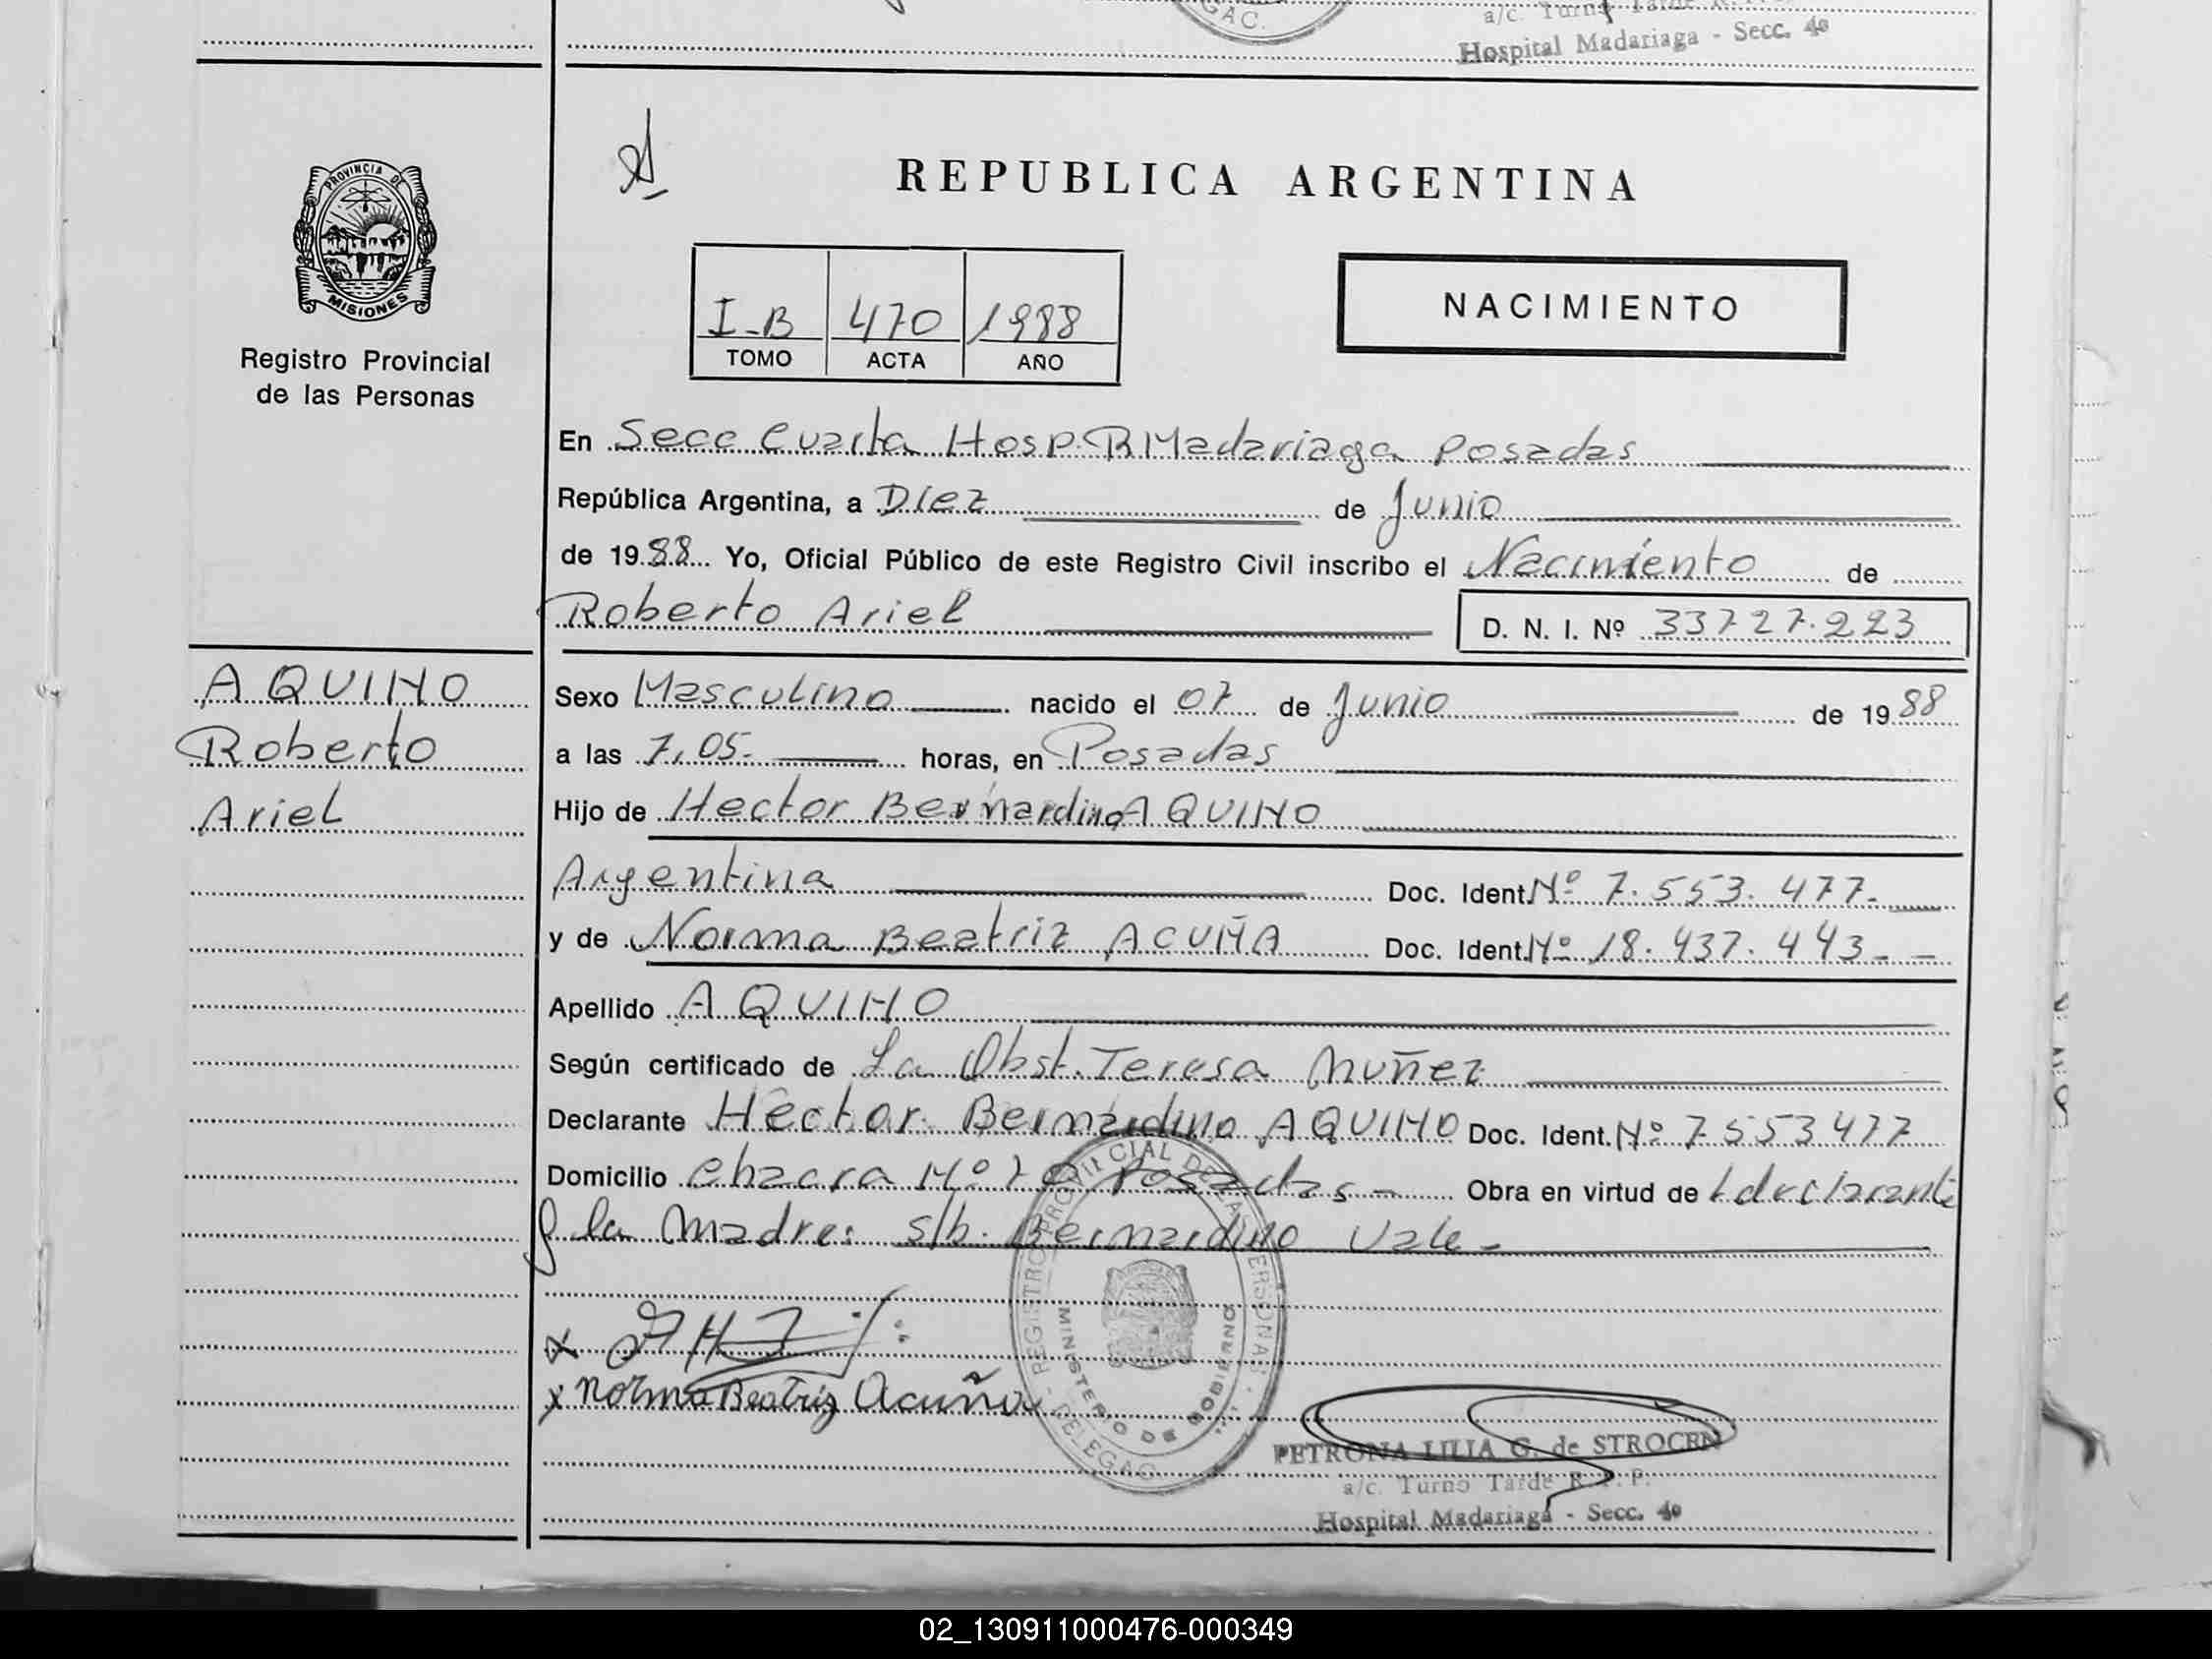 GAC.
a/c. Turno Tarde R.
Hospital Madariaga - Secc. 4º
PROVINCIA DE
MISIONES
Registro Provincial
de las Personas
REPUBLICA ARGENTINA
I-B 470 1988
TOMO ACTA AÑO
NACIMIENTO
En Secc Cuarta Hosp. R Madariaga Posadas
República Argentina, a Diez de Junio
de 1988 Yo, Oficial Público de este Registro Civil inscribo el Nacimiento de
Roberto Ariel D. N. I. Nº 33727.223
AQUINO
Roberto
Ariel
Sexo Masculino nacido el 07 de Junio de 1988
a las 7,05.- horas, en Posadas
Hijo de Hector Bernardino AQUINO
Argentina Doc. Ident. Nº 7.553.477-
y de Norma Beatriz ACUÑA Doc. Ident. Nº 18.437.443--
Apellido AQUINO
Según certificado de La Obst. Teresa Nuñez
Declarante Hector Bernardino AQUINO Doc. Ident. Nº 7553477
Domicilio Chacra Nº Posadas - Obra en virtud de declarante
la Madre: s/b. Bernardino Vale-
REGISTRO PROVINCIAL DE LAS PERSONAS
MINISTERIO DE GOBIERNO
DELEGAC.
x Norma Beatriz Acuña
PETRONA LILIA G. de STROCEN
a/c. Turno Tarde R. P. P.
Hospital Madariaga - Secc. 4º
02_130911000476-000349